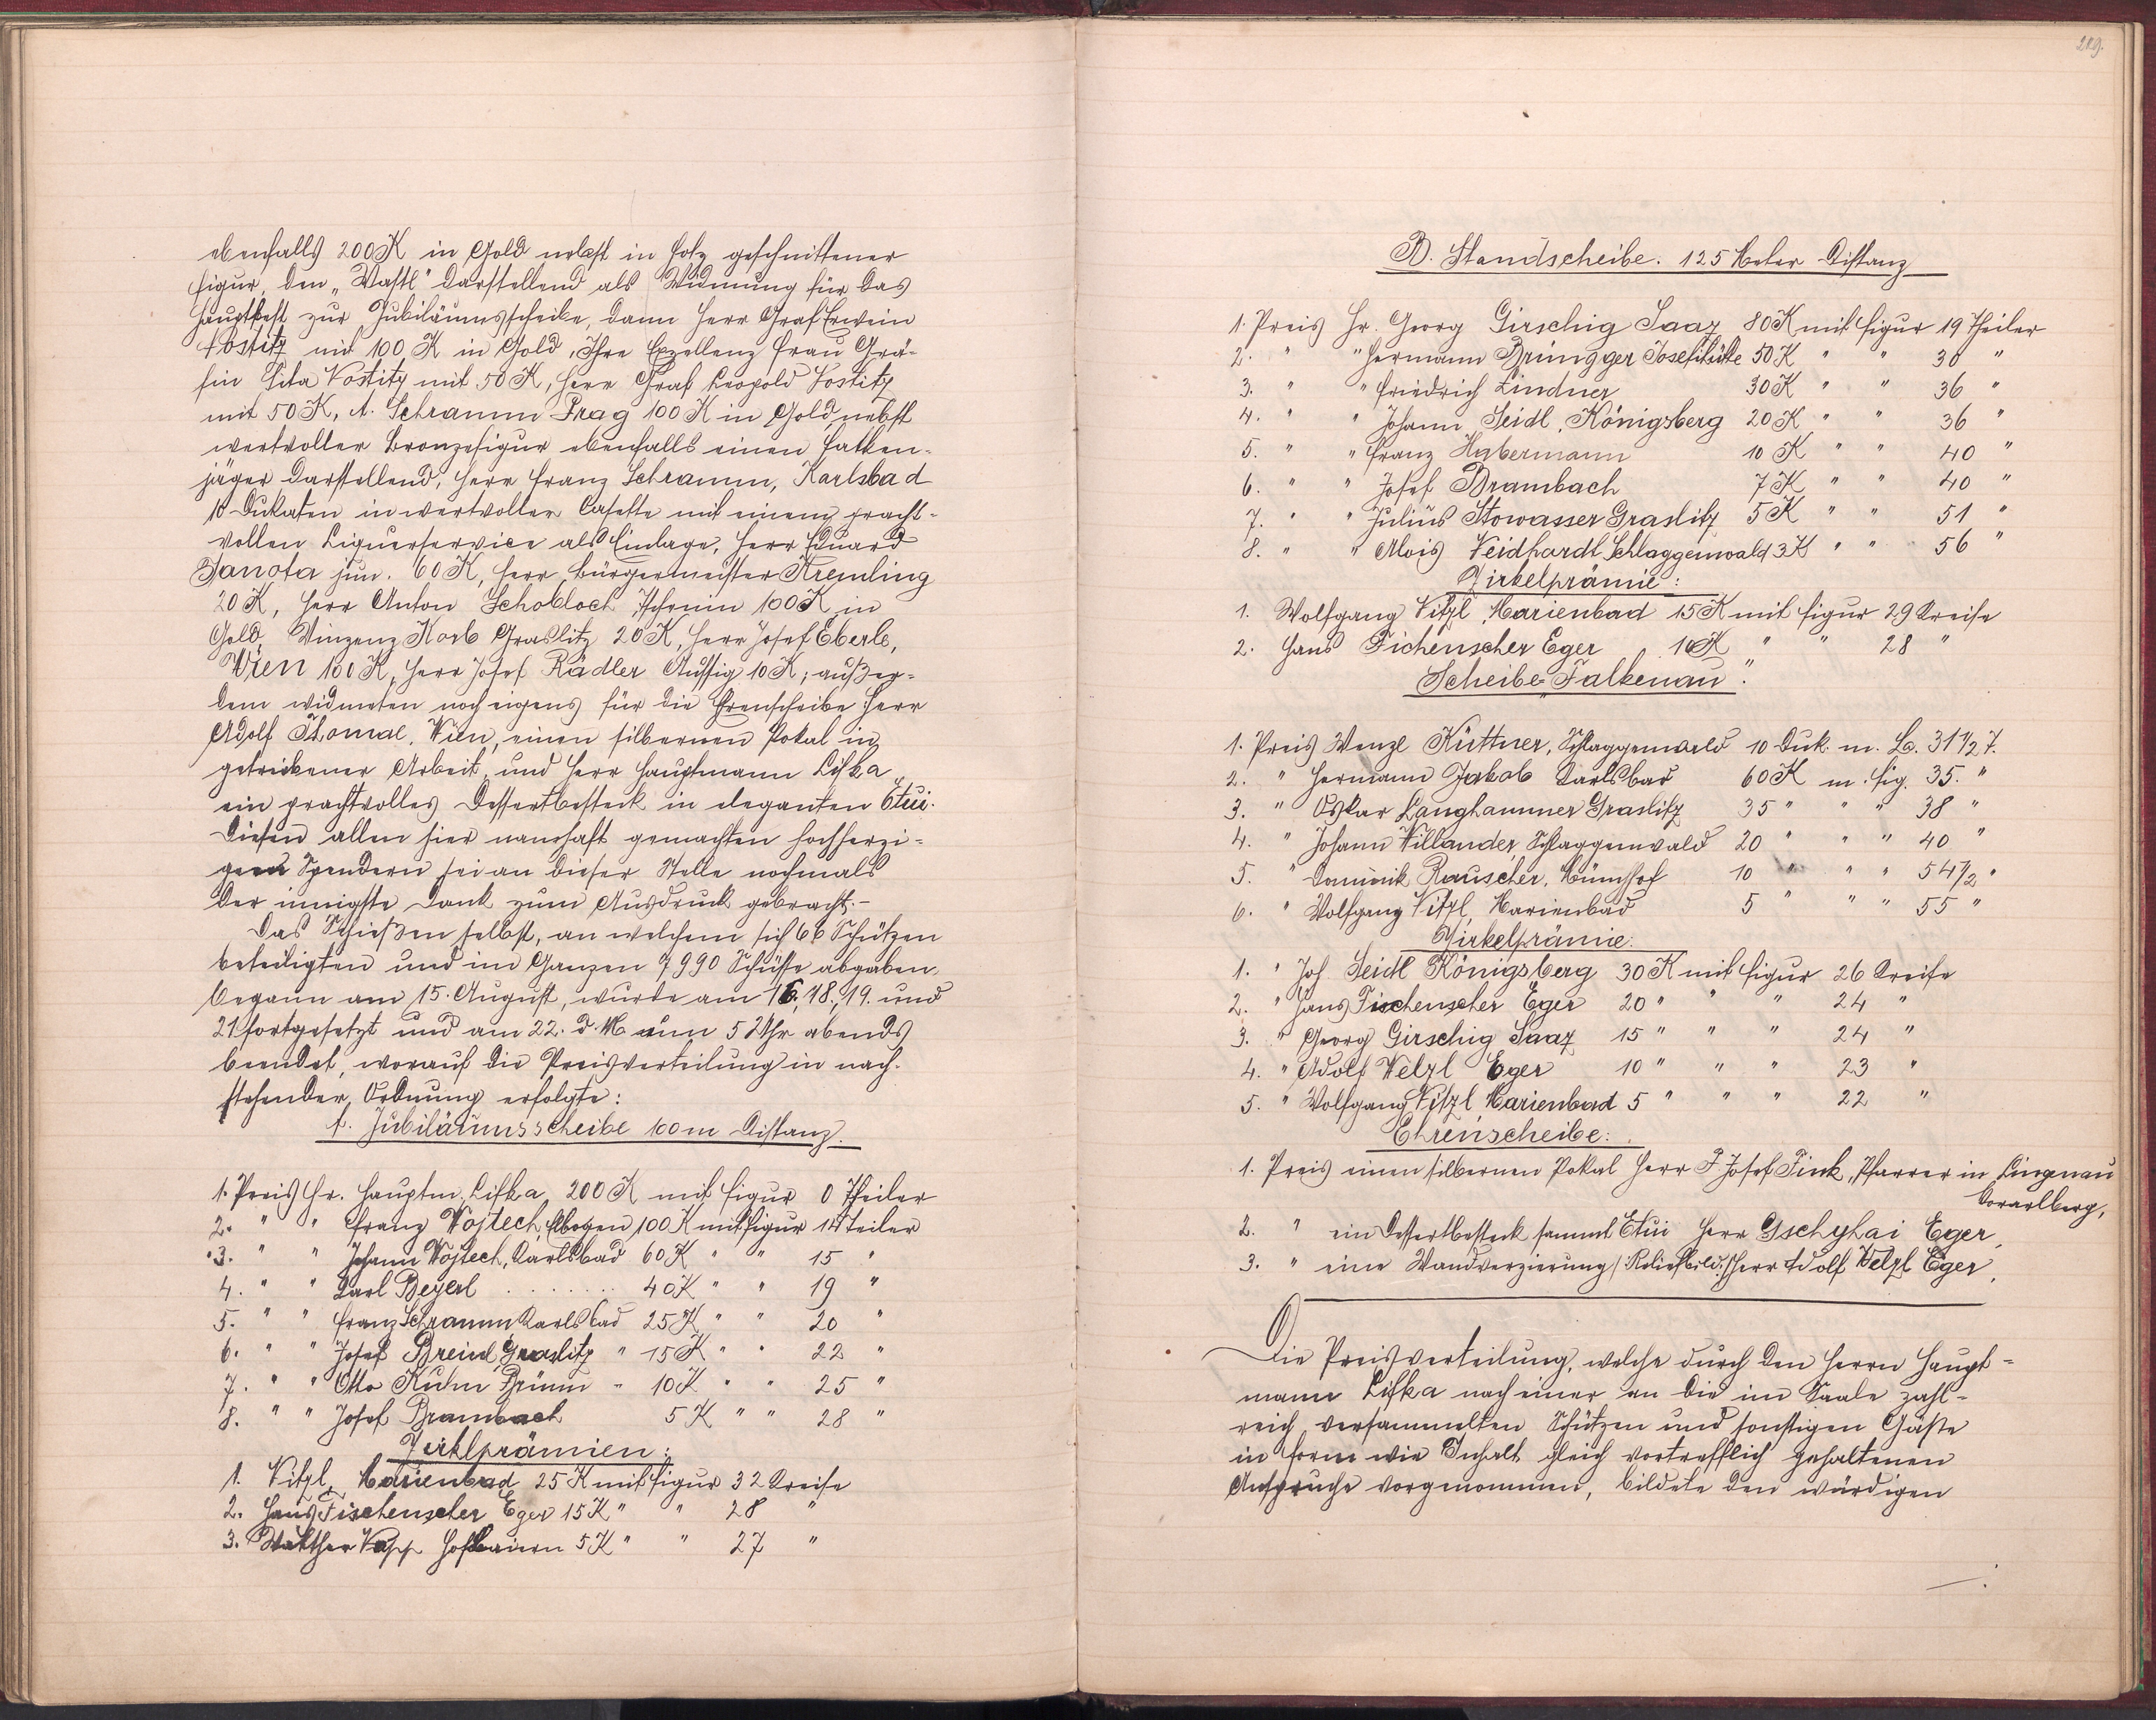 ebenfalls 200 K in Gold nebst in Holz geschnittener
Figur, den „Wastl" darstellend als Widmung für das
Hauptbest zur Jubiläumsscheibe, dann Herr Graf Erwein
Nostitz mit 100 K in Gold, Ihre Exzellenz Frau Grä-
fin Sita Nostitz mit 50 K, Herr Graf Leopold Nostitz
mit 50 K, A. Schramm Prag 100 K in Gold nebst
wertvoller Bronzefigur ebenfalls einen Falken-
jäger darstellend, Herr Franz Schramm, Karlsbad
10 Dukaten in wertvoller Casette mit einem pracht-
vollen Liquerservice als Einlage, Herr Eduard
Janota jun. 60 K, Herr Bürgermeister Kremling
20 K, Herr Anton Schobloch Tschemin 100 K in
Gold, Winzenz Korb Graslitz 20 K, Herr Josef Eberle,
Wien 100 K, Herr Josef Rädler Aussig 10 K; außer-
dem widmeten noch eigens für die Ehrenscheibe Herr
Adolf Thomae, Wien, einen silbernen Pokal in
getriebener Arbeit, und Herr Hauptmann Lifka
ein prachtvolles Dessertbesteck in eleganten Etui.
Diesen allen hier namhaft gemachten hochherzi-
gen Spendern sei an dieser Stelle nochmals
der innigste Dank zum Ausdruck gebracht. –
Das Schießen selbst, an welchem sich 66 Schützen
beteiligten und im Ganzen 7990 Schüsse abgaben,
begann am 15. August, wurde am 16., 18., 19. und
21 fortgesetzt und am 22. d. M um 5 Uhr abends
beendet, worauf die Preisverteilung in nach-
stehender Ordnung erfolgte:
A. Jubiläumsscheibe 100 m Distanz.
1. Preis Hr. Hauptm. Lifka 200 K mit Figur 0 Theiler
2. " " Franz Wojtech, Elbogen 100 K mit Figur 14 Teiler
3. " " Johann Wojtech, Karlsbad 60 K " " 15 "
4. " " Karl Beyerl . . . . . . . 40 K " " 19 "
5. " " Franz Schramm Karlsbad 25 K " " 20 "
6. " " Josef Breinl Graslitz " 15 K " " 22 "
7. " " Otto Kuhn Brünn " 10 K " " 25 "
8. " " Josef Brambach 5 K " " 28 "
Zirklprämien:
1. Vitzl, Marienbad 25 K mit Figur 32 Kreise
2. Hans Fischenscher Eger 15 K " " 28 "
3. Walther Hof Baiern 5 K " " 27 "
219.
B. Standscheibe. 125 Meter Distanz
1. Preis Hr. Georg Girschig Saaz 80 K mit Figur 19 Theiler
2. " " Hermann Brüngger Josefihütte 50 K " " 30 "
3. " " Friedrich Lindner 30 K " " 36 "
4. " " Johann Seidl, Königsberg 20 K " " 36 "
5. " " Franz Habermann 10 K " " 40 "
6. " " Josef Brambach 7 K " " 40 "
7. " " Julius Stowasser Graslitz 5 K " " 51 "
8. " " Alois Neidhardt Schlaggenwald 3 K " " 56 "
Zirkelprämie:
1. Wolfgang Vitzl, Marienbad 15 K mit Figur 29 Kreise
2. Hans Fichenscher Eger 10 K " " 28 "
Scheibe „Falkenau".
1. Preis Wenzl Küttner, Schlaggenwald 10 Duk. m. Ca. 31 1/2 T.
2. " Hermann Jakob Karlsbad 60 K m. Fig. 35. "
3. " Oskar Langhammer Graslitz 35 " " " 38 "
4. " Johann Willander Schlaggenwald 20 " " " 40 "
5. " Dominik Rauscher, Münchhof 10 " " " 54 1/2 "
6. " Wolfgang Vitzl, Marienbad 5 " " " 55 "
Zirkelprämie:
1. " Joh Seidl Königsberg 30 K mit Figur 26 Kreise
2. " Hans Fischenscher Eger 20 " " " 24 "
3. " Georg Girschig Saaz 15 " " " 24 "
4. " Adolf Welzl Eger 10 " " " 23 "
5. " Wolfgang Vitzl, Marienbad 5 " " " 22 "
Ehrenscheibe:
1. Preis einen silbernen Pokal Herr P. Josef Fink, Pfarrer in Lingenau
Vorarlberg,
2. " ein Dessertbesteck sammt Etui Herr Gschyhai Eger,
3. " eine Wandverzierung /: Reliefbild :/ Herr Adolf Welzl Eger,
Die Preisverteilung, welche durch den Herrn Haupt-
mann Lifka nach einer an die im Saale zahl-
reich versammelten Schützen und sonstigen Gäste
in Form wie Inhalt gleich vortrefflich gehaltenen
Ansprache vorgenommen, bildete den würdigen